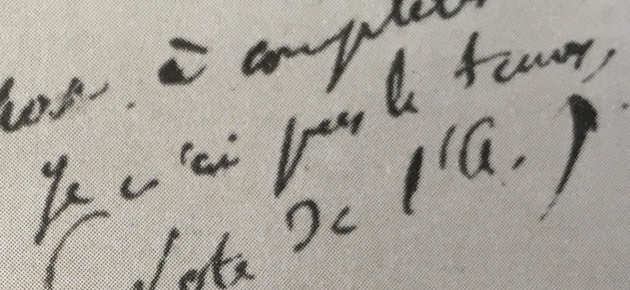 hose à complét
Je n'ai pas le tems.
(Note de l'A.)